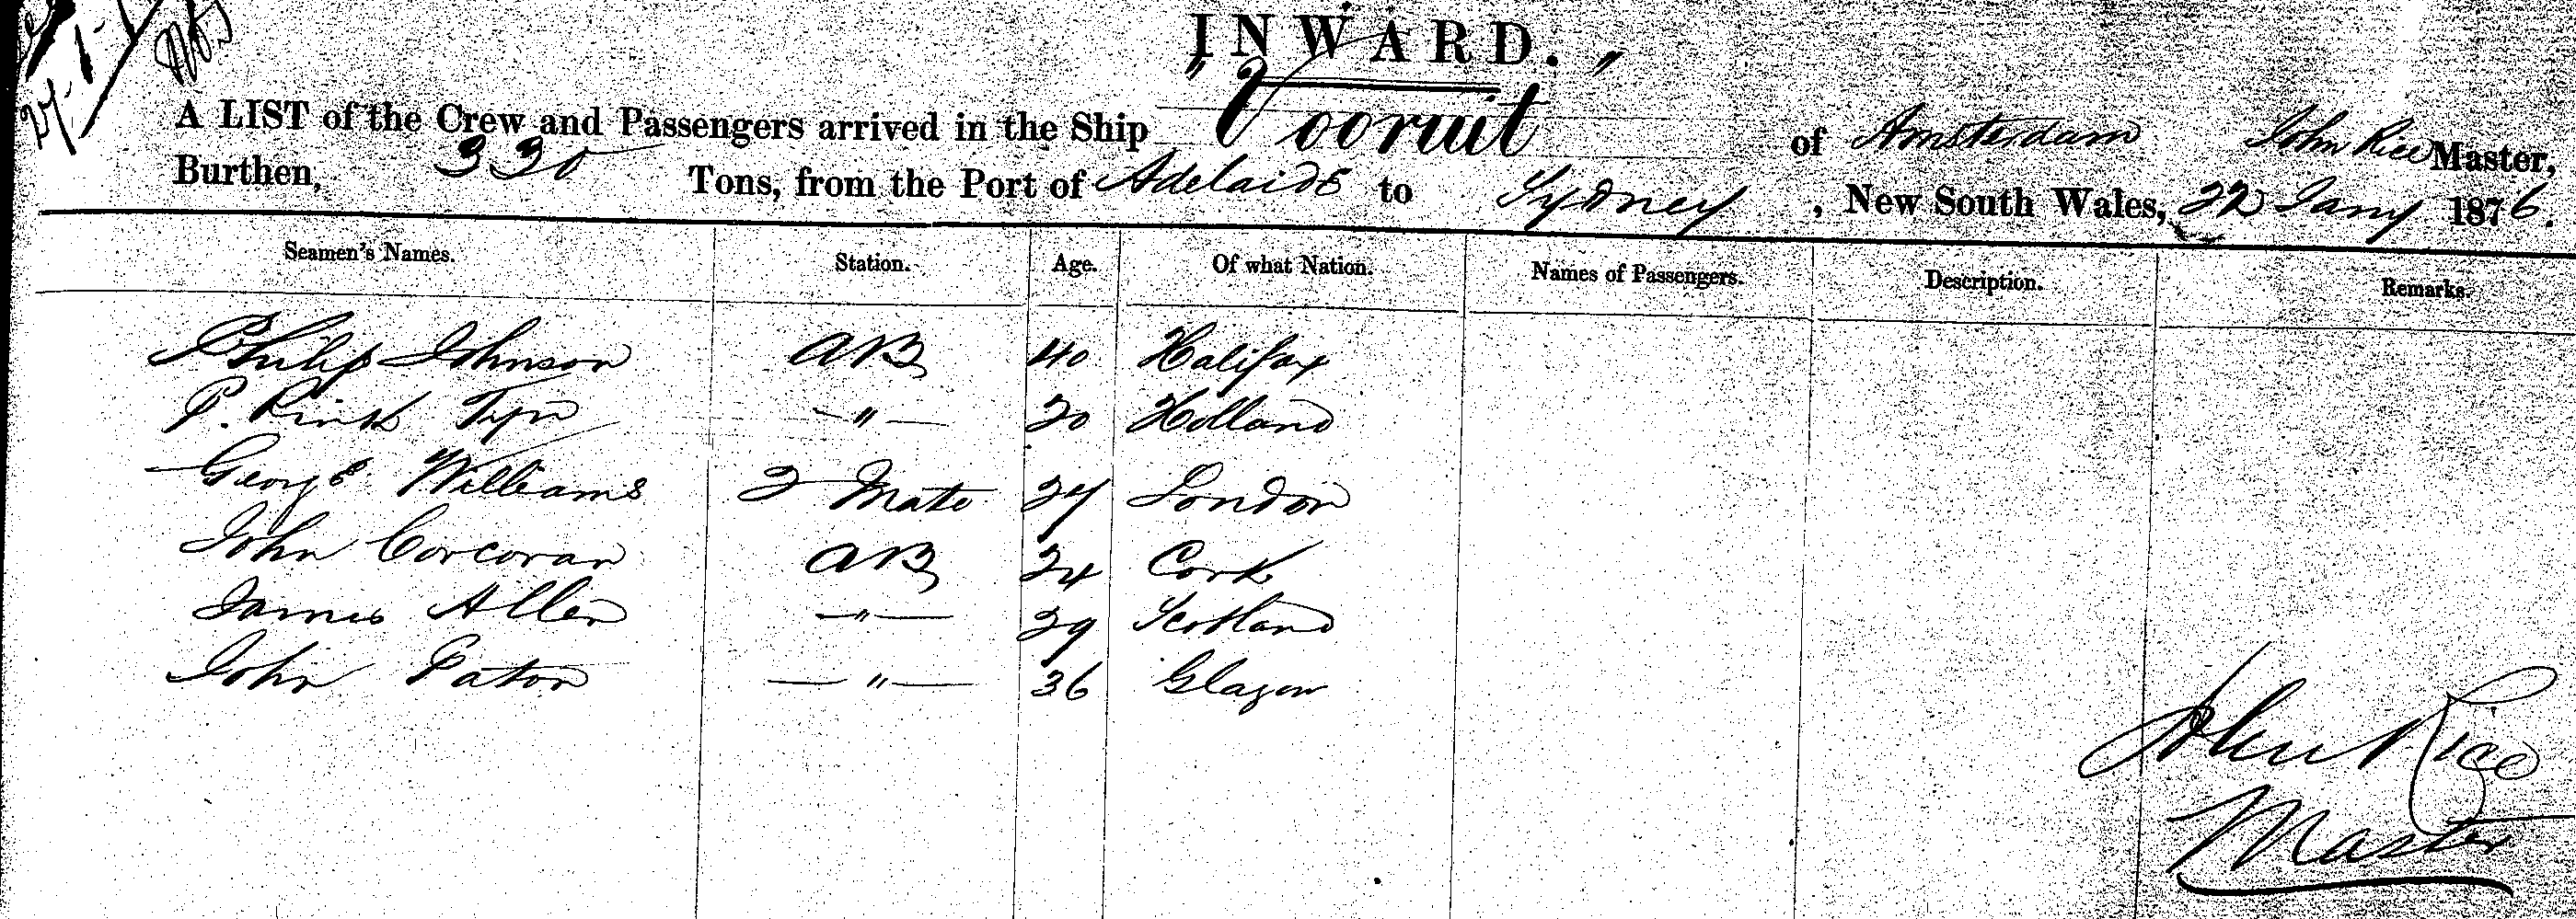 INWARD.
A LIST of the Crew and Passengers arrived in the Ship "Vooruit" of Amsterdam John Rice Master,
Burthen, 330 Tons, from the Port of Adelaide to Sydney, New South Wales, 22 Jany 1876.
Seamen's Names. Station. Age. Of what Nation. Names of Passengers. Description. Remarks.
Philip Johnson AB 40 Halifax
P. Rink —"— 20 Holland
George Williams 2 Mate 27 London
John Corcoran AB 24 Cork
James Allen —"— 29 Scotland
John Paton —"— 36 Glagow
John Rice
Master